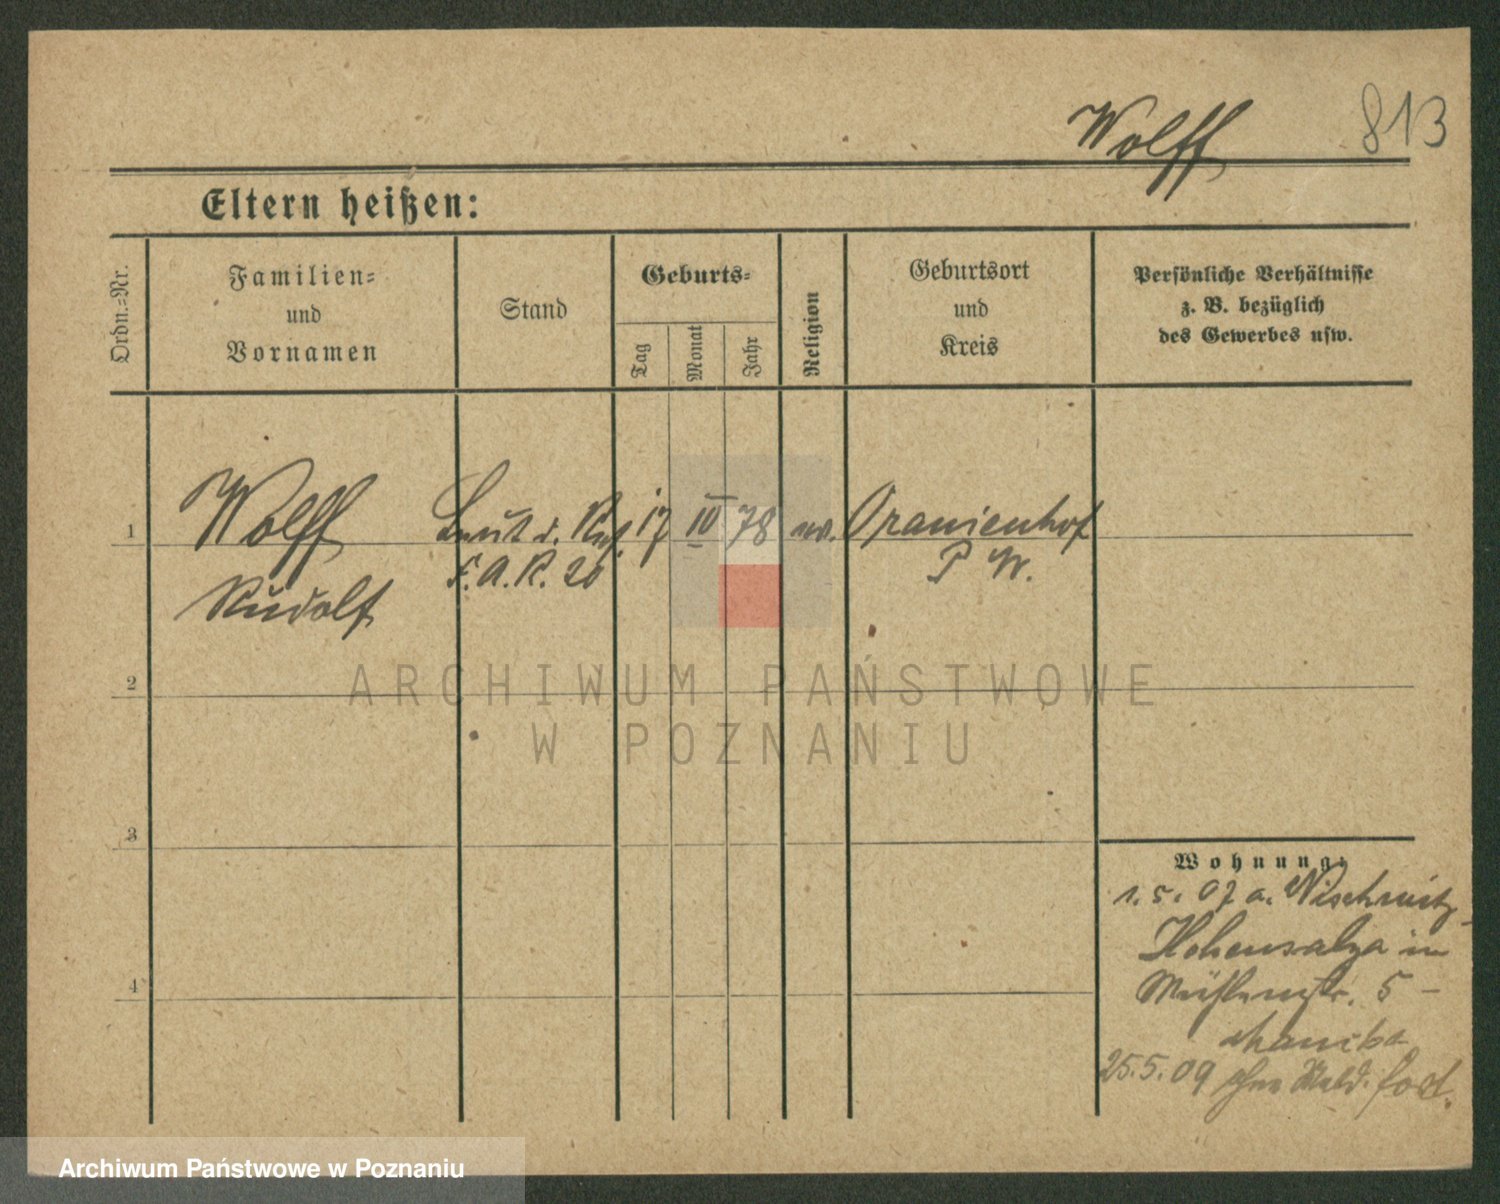 Wolff 813
Eltern heißen:
Ordn.-Nr.
Familien-
und
Vornamen
Stand
Geburts-
Tag
Monat
Jahr
Religion
Geburtsort
und
Kreis
Persönliche Verhältnisse
z. B. bezüglich
des Gewerbes usw.
1
Wolff
Rudolf
Leut d.
F. A. R. 20
17 IV 78
Oranienhof
P W.
2
ARCHIWUM PAŃSTWOWE
W POZNANIU
3
4
Wohnung:
1. 5. 07 a.
Hohensalza in
Mühlenstr. 5 -
25.5.09 ohne Meld. fort.
Archiwum Państwowe w Poznaniu